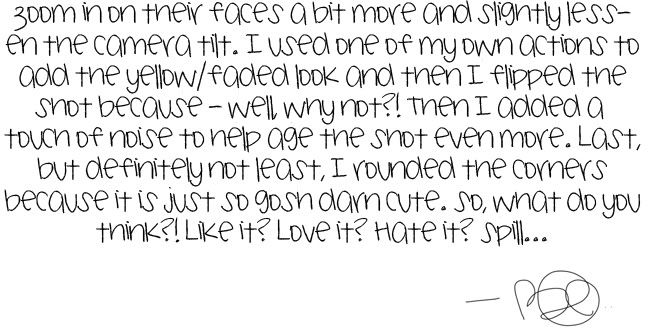 zoom in on their faces a bit more and slightly less-
en the camera tilt. I used one of my own actions to
add the yellow/faded look and then I flipped the
shot because - well, why not?! Then I added a
touch of noise to help age the shot even more. Last,
but definitely not least, I rounded the corners
because it is just so gosh darn cute. So, what do you
think?! Like it? Love it? Hate it? Spill...